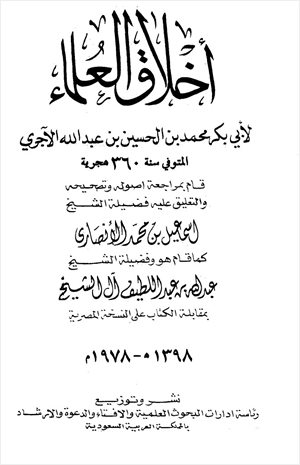 أخلاق العلماء
لأبي بكر محمد بن الحسين بن عبد الله الآجري
المتوفي سنة ٣٦٠ هجرية
قام بمراجعة اصوله وتصحيحه
والتعليق عليه فضيلة الشيخ
اسماعيل بن محمد الأنصاري
كما قام هو وفضيلة الشيخ
عبدالله بن عبد اللطيف آل الشيخ
بمقابلة الكتاب على النسخة المصرية
١٣٩٨ه - ١٩٧٨م
نشر وتوزيع
رئاسة ادارات البحوث العلمية والافتاء والدعوة والارشاد
بالمملكة العربية السعودية